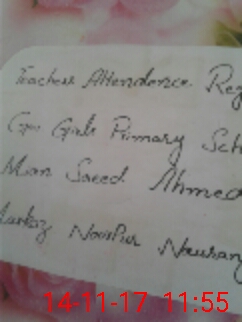 Teachers Attendence Reg
Gov Girls Primary Sch
Mian Saeed Ahmed
Markaz NourPur Nauran
14-11-17 11:55